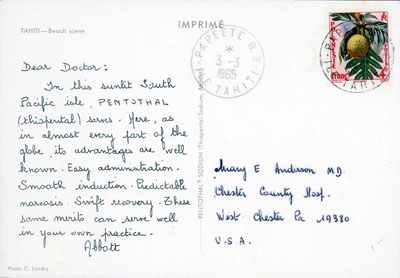 IMPRIMÉ
TAHITI — Beach scene
PAPEETE R.P.
*
3-3
1965
TAHITI
Dear Doctor:
In this sunlit South
Pacific isle, PENTOTHAL
(thiopental) serves. Here, as
in almost every part of the
globe, its advantages are well
known. Easy administration.
Smooth induction. Predictable
narcosis. Swift recovery. These
same merits can serve well
in your own practice.
Abbott
PENTOTHAL® SODIUM (Thiopental Sodium, Abbott)
Mary E Anderson MD.
Chester County Hosp.
West Chester Pa 19380
U.S.A.
Photo C. Landry